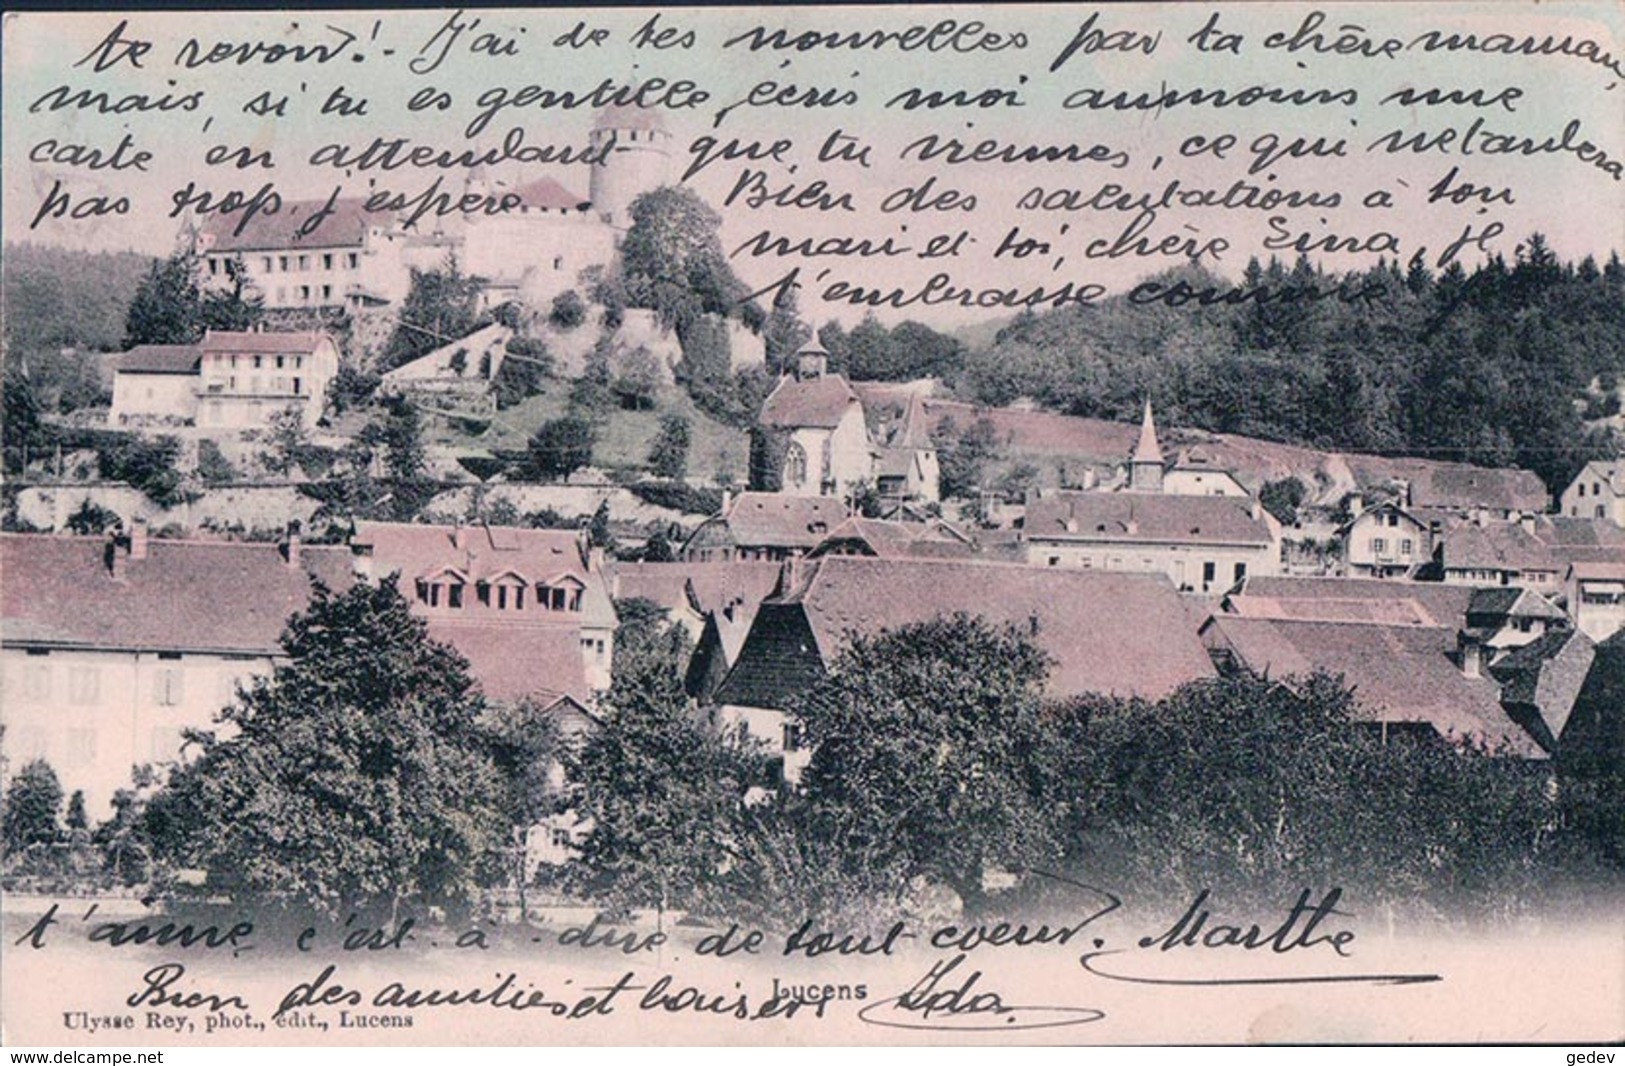 te revoir! - J'ai de tes nouvelles par ta chère maman,
mais, si tu es gentille, écris moi au moins une
carte en attendant que tu viennes, ce qui ne tardera
pas trop, j'espère. Bien des salutations à ton
mari et toi, chère Lina, je
t'embrasse comme je
t'aime c'est-à-dire de tout coeur. Marthe
Bien des amitiés et baisers Ida.
Lucens
Ulysse Rey, phot., édit., Lucens
gedev
www.delcampe.net